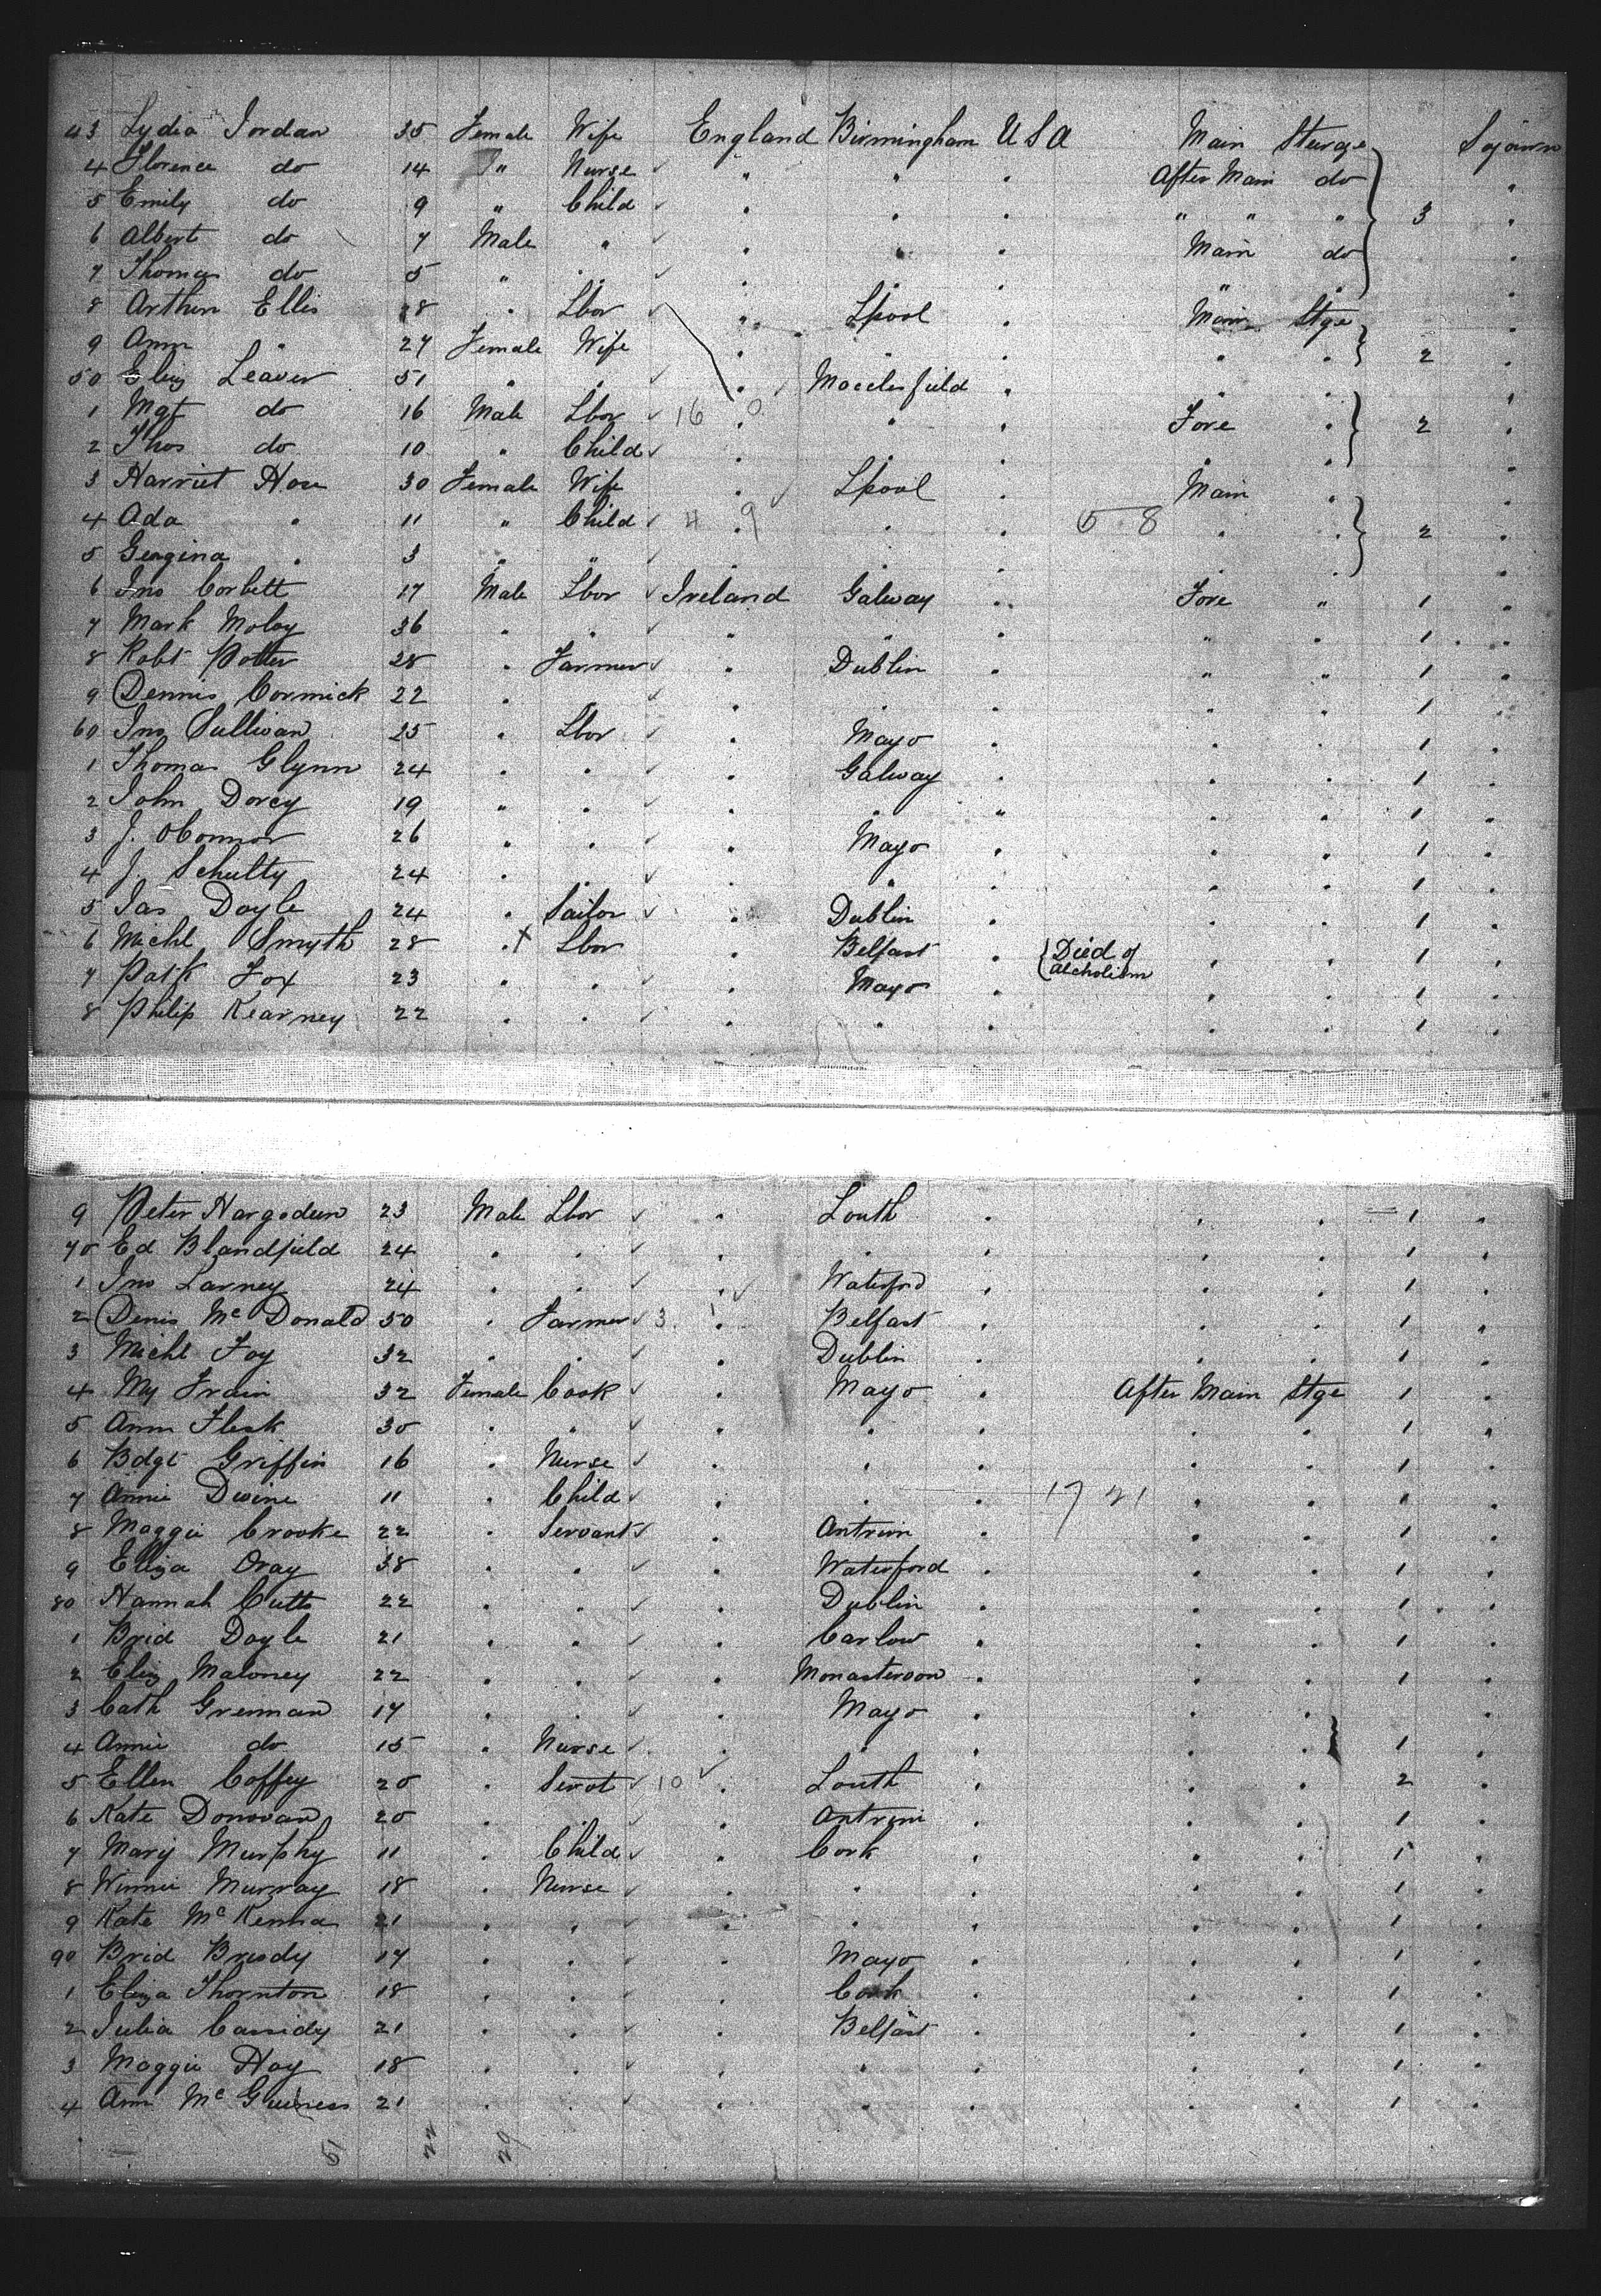 43 Lydia Jordan 35 Female Wife England Birmingham USA Main Sturge Sojourn
4 Florence do 14 " Nurse " " " After Main do "
5 Emily do 9 " Child " " " " " " 3 "
6 Albert do 7 Male " " " " Main do "
7 Thomas do 5 " " " " " " " "
8 Arthur Ellis 28 " Lbor " Lpool " Main Stge "
9 Ann " 27 Female Wife " " " " " 2 "
50 Eliz Leaver 51 " " " Macclesfield " " " "
1 Mgt do 16 Male Lbor 16 " " " Fore " 2 "
2 Thos do 10 " Child " " " " " "
3 Harriet Hou 30 Female Wife " Lpool " Main " "
4 Ada " 11 " Child 4 9 " " " 5 8 " " 2 "
5 Georgina " 3 " " " " " " " "
6 Jno Corbett 17 Male Lbor Ireland Galway " Fore " 1 "
7 Mark Moloy 36 " " " " " " " 1 "
8 Robt Potter 28 " Farmer " Dublin " " " 1 "
9 Dennis Cormick 22 " " " " " " " 1 "
60 Jno Sullivan 25 " Lbor " Mayo " " " 1 "
1 Thomas Glynn 24 " " " Galway " " " 1 "
2 John Dorcy 19 " " " " " " " 1 "
3 J. OConnor 26 " " " Mayo " " " 1 "
4 J. Schulty 24 " " " " " " " 1 "
5 Jas Doyle 24 " Sailor " Dublin " " " 1 "
6 Michl Smyth 28 " x Lbor " Belfast " Died of Alcholism " " 1 "
7 Patk Fox 23 " " " Mayo " " " 1 "
8 Philip Kearney 22 " " " " " " " 1 "
9 Peter Hargodun 23 Male Lbor " Louth " " " 1 "
70 Ed Blandfield 24 " " " " " " " 1 "
1 Jno Larney 24 " " " Waterford " " " 1 "
2 Denis McDonald 50 " Farmer 3 " Belfast " " " 1 "
3 Michl Foy 32 " " " Dublin " " " 1 "
4 My Frain 32 Female Cook " Mayo " After Main Stge 1 "
5 Ann Flesk 30 " " " " " " " 1 "
6 Bdgt Griffin 16 " Nurse " " " " " 1 "
7 Annie Divine 11 " Child " " " 17 21 " " 1 "
8 Maggie Crooke 22 " Servant " Antrim " " " 1 "
9 Eliza Dray 38 " " " Waterford " " " 1 "
80 Hannah Cutts 22 " " " Dublin " " " 1 "
1 Brid Doyle 21 " " " Carlow " " " 1 "
2 Eliz Maloney 22 " " " Monasteroon " " " 1 "
3 Cath Greiman 17 " " " Mayo " " " "
4 Annie do 15 " Nurse " " " " " 1 "
5 Ellen Coffey 20 " Servt 10 " Louth " " " 2 "
6 Kate Donovan 20 " " " Antrim " " " 1 "
7 Mary Murphy 11 " Child " Cork " " " 1 "
8 Winnie Murray 18 " Nurse " " " " " 1 "
9 Kate McKenna 21 " " " " " " " 1 "
90 Brid Brody 17 " " " Mayo " " " 1 "
1 Eliza Thornton 18 " " " Cork " " " 1 "
2 Julia Cassidy 21 " " " Belfast " " " 1 "
3 Maggie Hay 18 " " " " " " " 1 "
4 Ann McGuiness 21 " " " " " " " 1 "
51 22 29